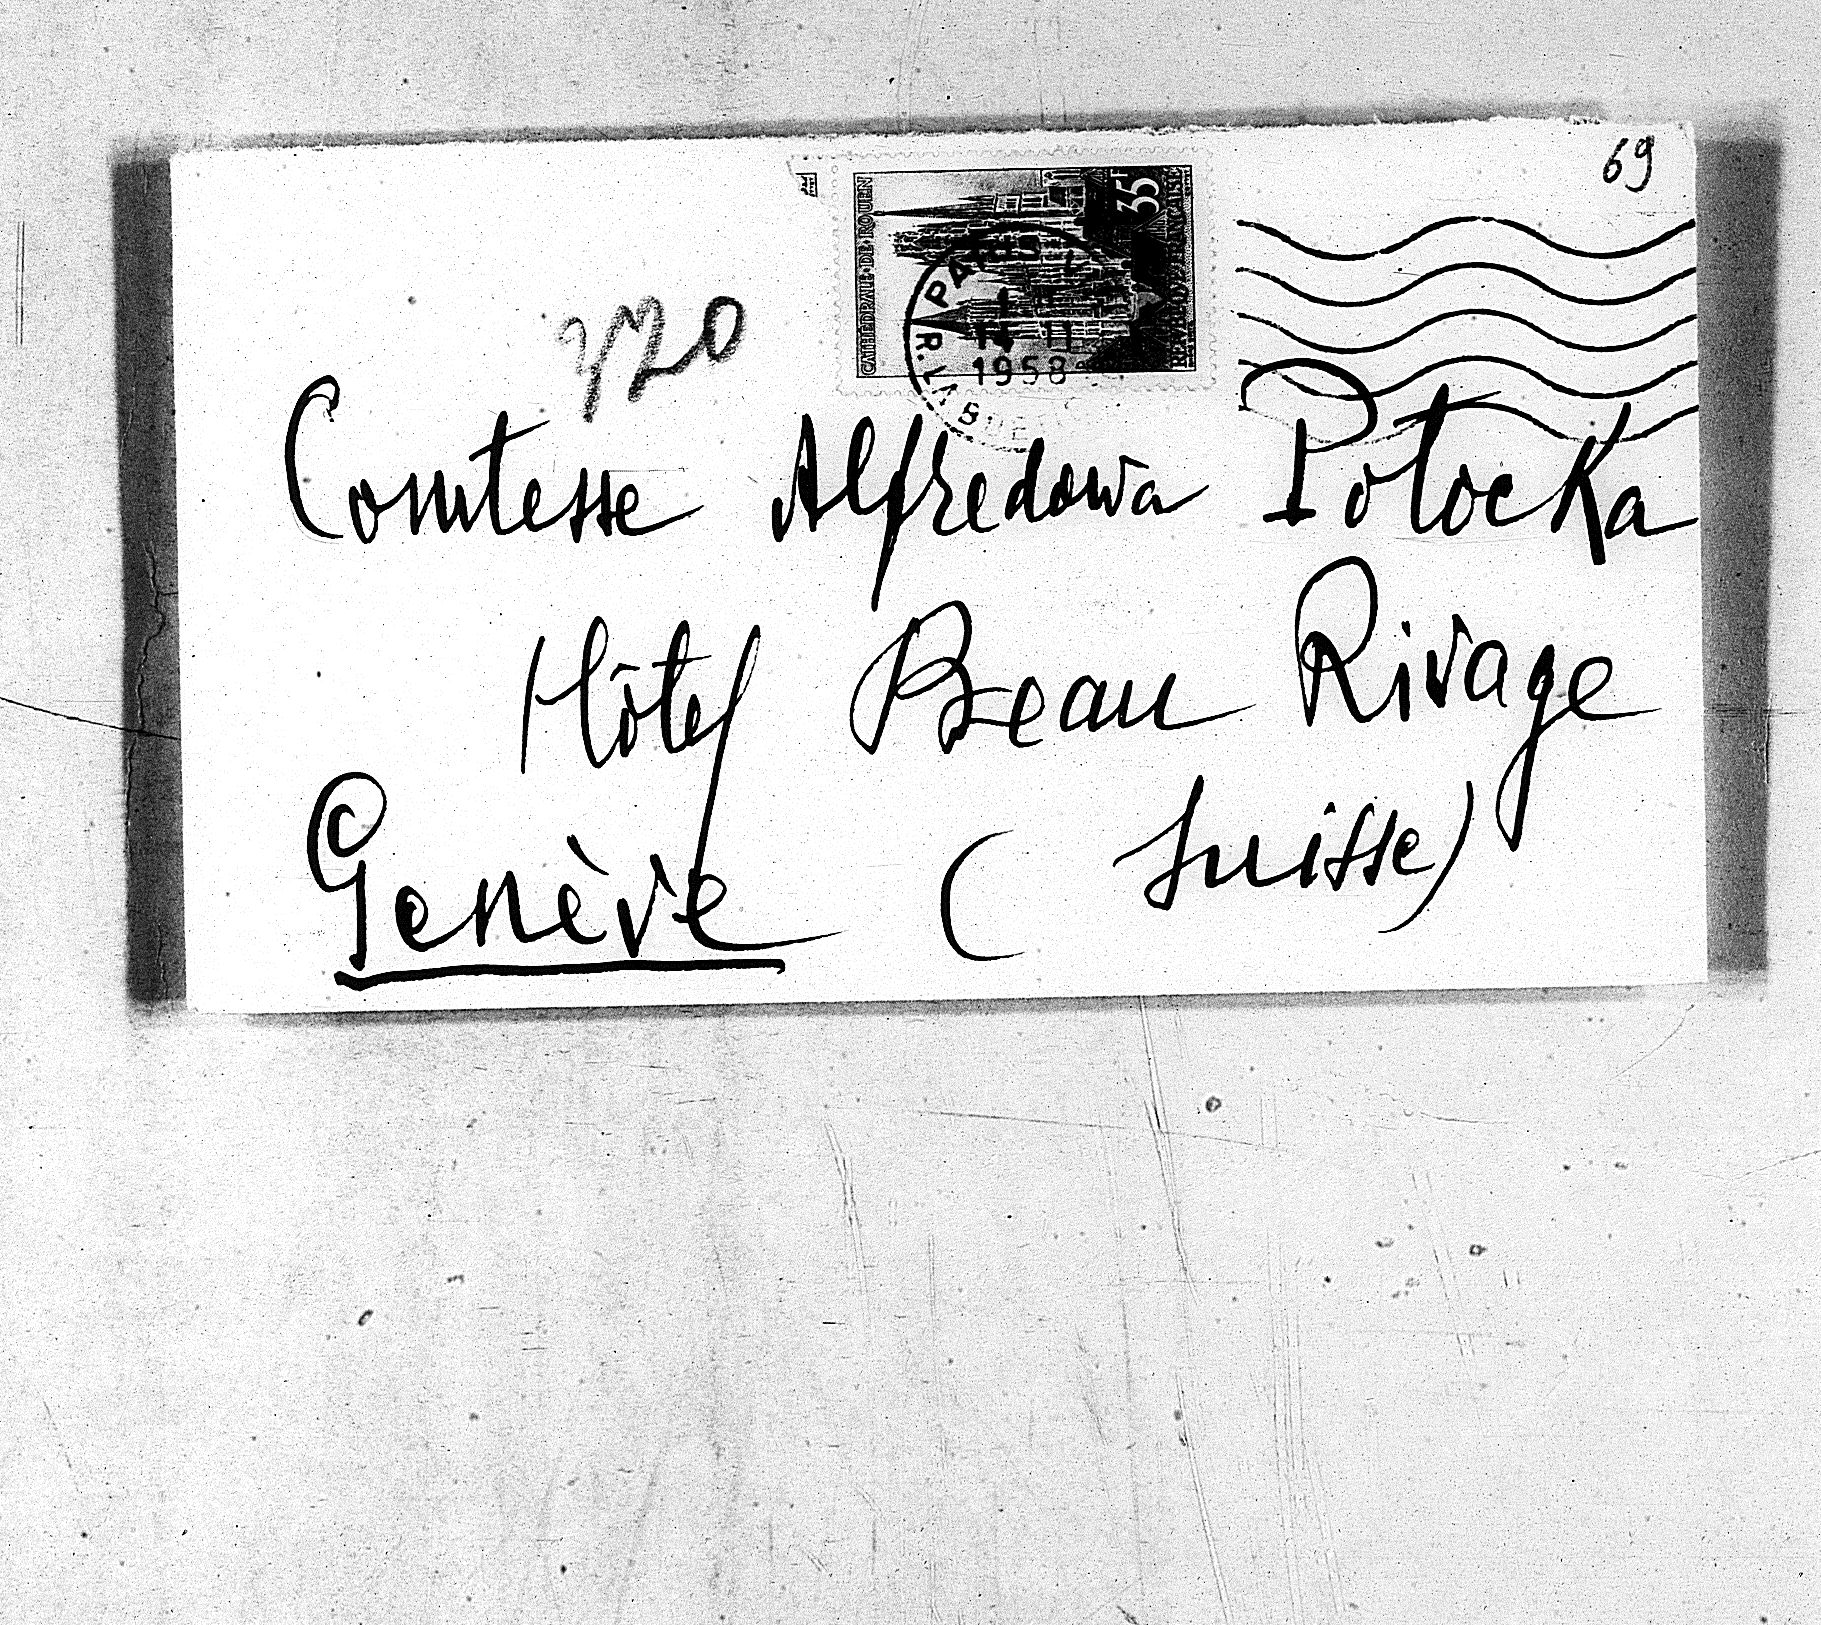 69
CATHÉDRALE DE ROUEN
35F
RÉPUBLIQUE FRANÇAISE
PARIS
1958
720
Comtesse Alfredowa Potocka
Hôtel Beau Rivage
Genève (Suisse)